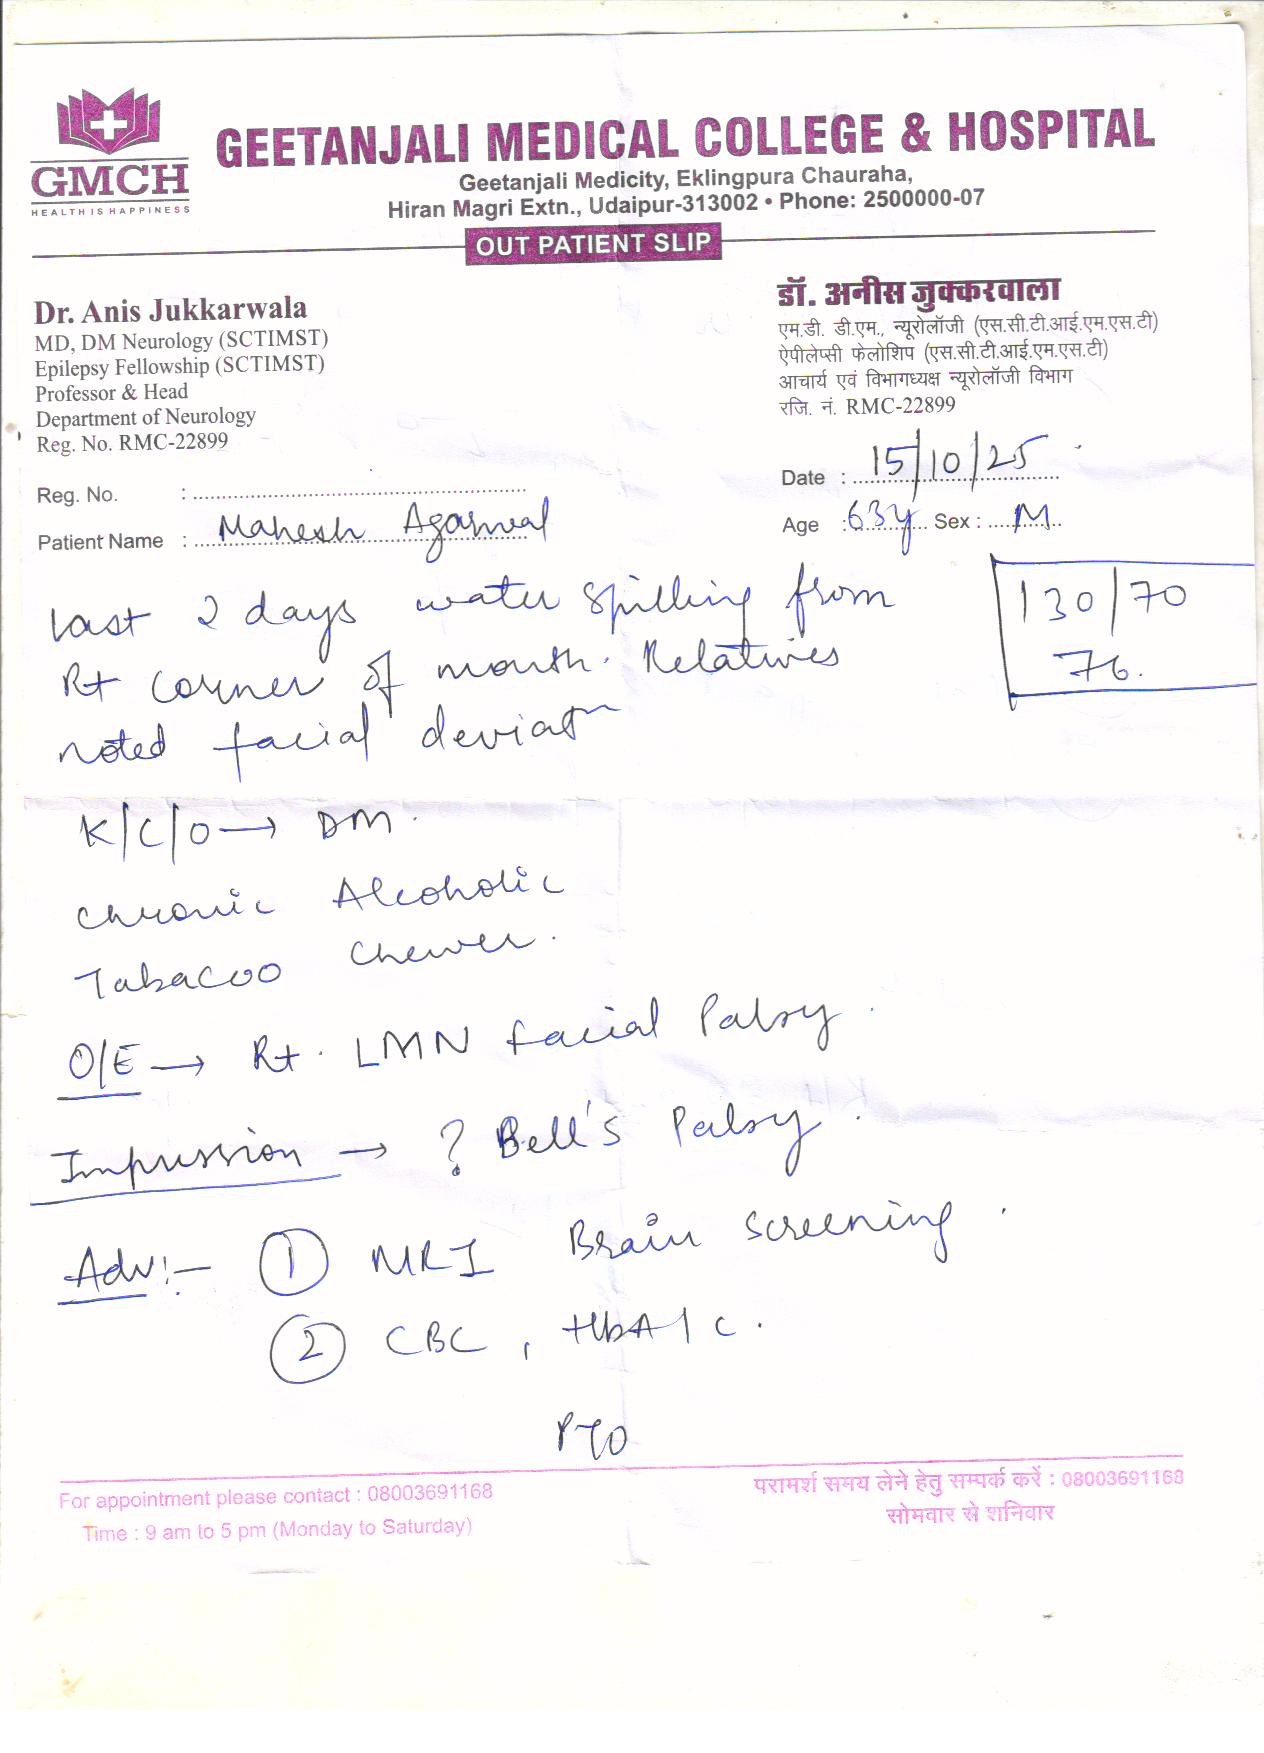 GMCH
HEALTH IS HAPPINESS
GEETANJALI MEDICAL COLLEGE & HOSPITAL
Geetanjali Medicity, Eklingpura Chauraha,
Hiran Magri Extn., Udaipur-313002 • Phone: 2500000-07
OUT PATIENT SLIP
Dr. Anis Jukkarwala
MD, DM Neurology (SCTIMST)
Epilepsy Fellowship (SCTIMST)
Professor & Head
Department of Neurology
Reg. No. RMC-22899
डॉ. अनीस जुक्करवाला
एम.डी. डी.एम., न्यूरोलॉजी (एस.सी.टी.आई.एम.एस.टी)
ऐपीलेप्सी फेलोशिप (एस.सी.टी.आई.एम.एस.टी)
आचार्य एवं विभागध्यक्ष न्यूरोलॉजी विभाग
रजि. नं. RMC-22899
Reg. No. :
Date : 15/10/25
Patient Name : Mahesh Agarwal
Age : 63y Sex : M
130/70
76.
Last 2 days water spilling from
Rt corner of mouth. Relatives
noted facial deviatn
K/C/O → DM.
Chronic Alcoholic
Tabacoo Chewer.
O/E → Rt. LMN facial Palsy.
Impression → ? Bell's Palsy.
Adv:- ① MRI Brain Screening.
② CBC, HbA1c.
PTO
For appointment please contact : 08003691168
Time : 9 am to 5 pm (Monday to Saturday)
परामर्श समय लेने हेतु सम्पर्क करें : 08003691168
सोमवार से शनिवार